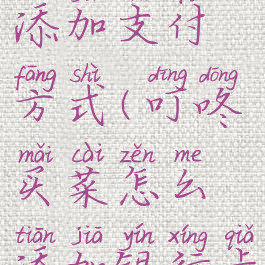 添加支付
fāng shì dīng dōng
方式(叮咚
mǎi cài zěn me
买菜怎么
tiān jiā yín xíng qiǎ
添加银行卡